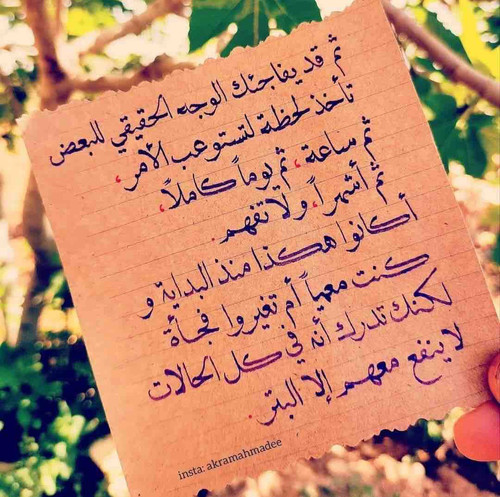 ثم قد يفاجئك الوجه الحقيقي للبعض
تأخذ لحظة لتستوعب الأمر،
ثم ساعة، ثم يوماً كاملاً،
ثم أشهراً، ولا تفهم.
أكانوا هكذا منذ البداية و
كنت معمياً أم تغيروا فجأة
لكنك تدرك أنه في كل الحالات
لا ينفع معهم إلا البتر.
insta: akramahmadee